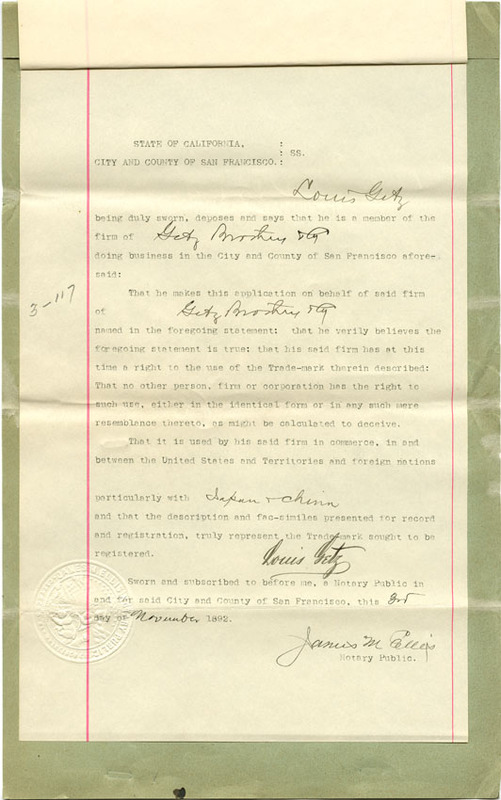 STATE OF CALIFORNIA, :
: SS.
CITY AND COUNTY OF SAN FRANCISCO. :
Louis Getz
being duly sworn, deposes and says that he is a member of the
firm of Getz Brothers & Co
doing business in the City and County of San Francisco afore-
said:
That he makes this application on behalf of said firm
3-117
of Getz Brothers & Co
named in the foregoing statement: that he verily believes the
foregoing statement is true: that his said firm has at this
time a right to the use of the Trade-mark therein described:
That no other person, firm or corporation has the right to
such use, either in the identical form or in any such mere
resemblance thereto, as might be calculated to deceive.
That it is used by his said firm in commerce, in and
between the United States and Territories and foreign nations
particularly with Japan & China
and that the description and fac-similes presented for record
and registration, truly represent the Trade-mark sought to be
registered. Louis Getz
Sworn and subscribed to before me, a Notary Public in
and for said City and County of San Francisco, this 3rd
day of November 1892.
James M Ellis
Notary Public.